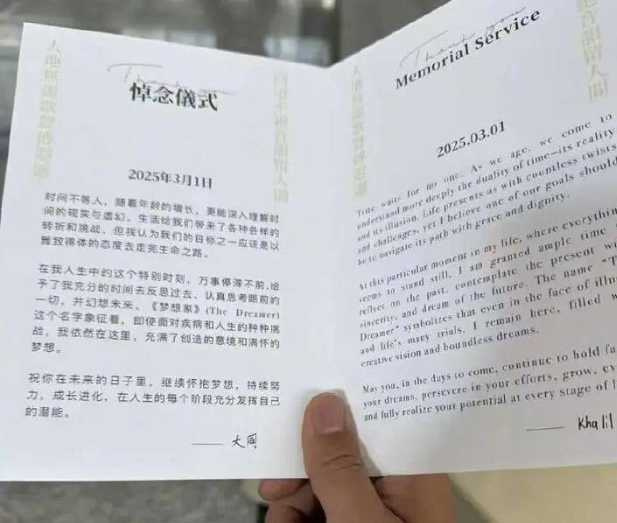 Thank you
悼念儀式
2025年3月1日
时间不等人，随着年龄的增长，更能深入理解时
间的现实与虚幻。生活给我们带来了各种各样的
转折和挑战，但我认为我们的目标之一应该是以
雅致得体的态度去走完生命之路。
在我人生中的这个特别时刻，万事停滞不前，给
予了我充分的时间去反思过去、认真思考眼前的
一切，并幻想未来。《梦想家》(The Dreamer)
这个名字象征着，即使面对疾病和人生的种种挑
战，我依然在这里，充满了创造的意境和满怀的
梦想。
祝你在未来的日子里，继续怀抱梦想，持续努
力，成长进化，在人生的每个阶段充分发挥自己
的潜能。
—— 大同
Thank you
Memorial Service
2025.03.01
Time waits for no one. As we age, we come to
understand more deeply the duality of time—its reality
and its illusion. Life presents us with countless twists
and challenges, yet I believe one of our goals should
be to navigate its path with grace and dignity.
At this particular moment in my life, where everything
seems to stand still, I am granted ample time
reflect on the past, contemplate the present wi
sincerity, and dream of the future. The name "T
Dreamer" symbolizes that even in the face of illn
and life's many trials, I remain here, filled w
creative vision and boundless dreams.
May you, in the days to come, continue to hold fa
your dreams, persevere in your efforts, grow, ev
and fully realize your potential at every stage of l
—— Khalil